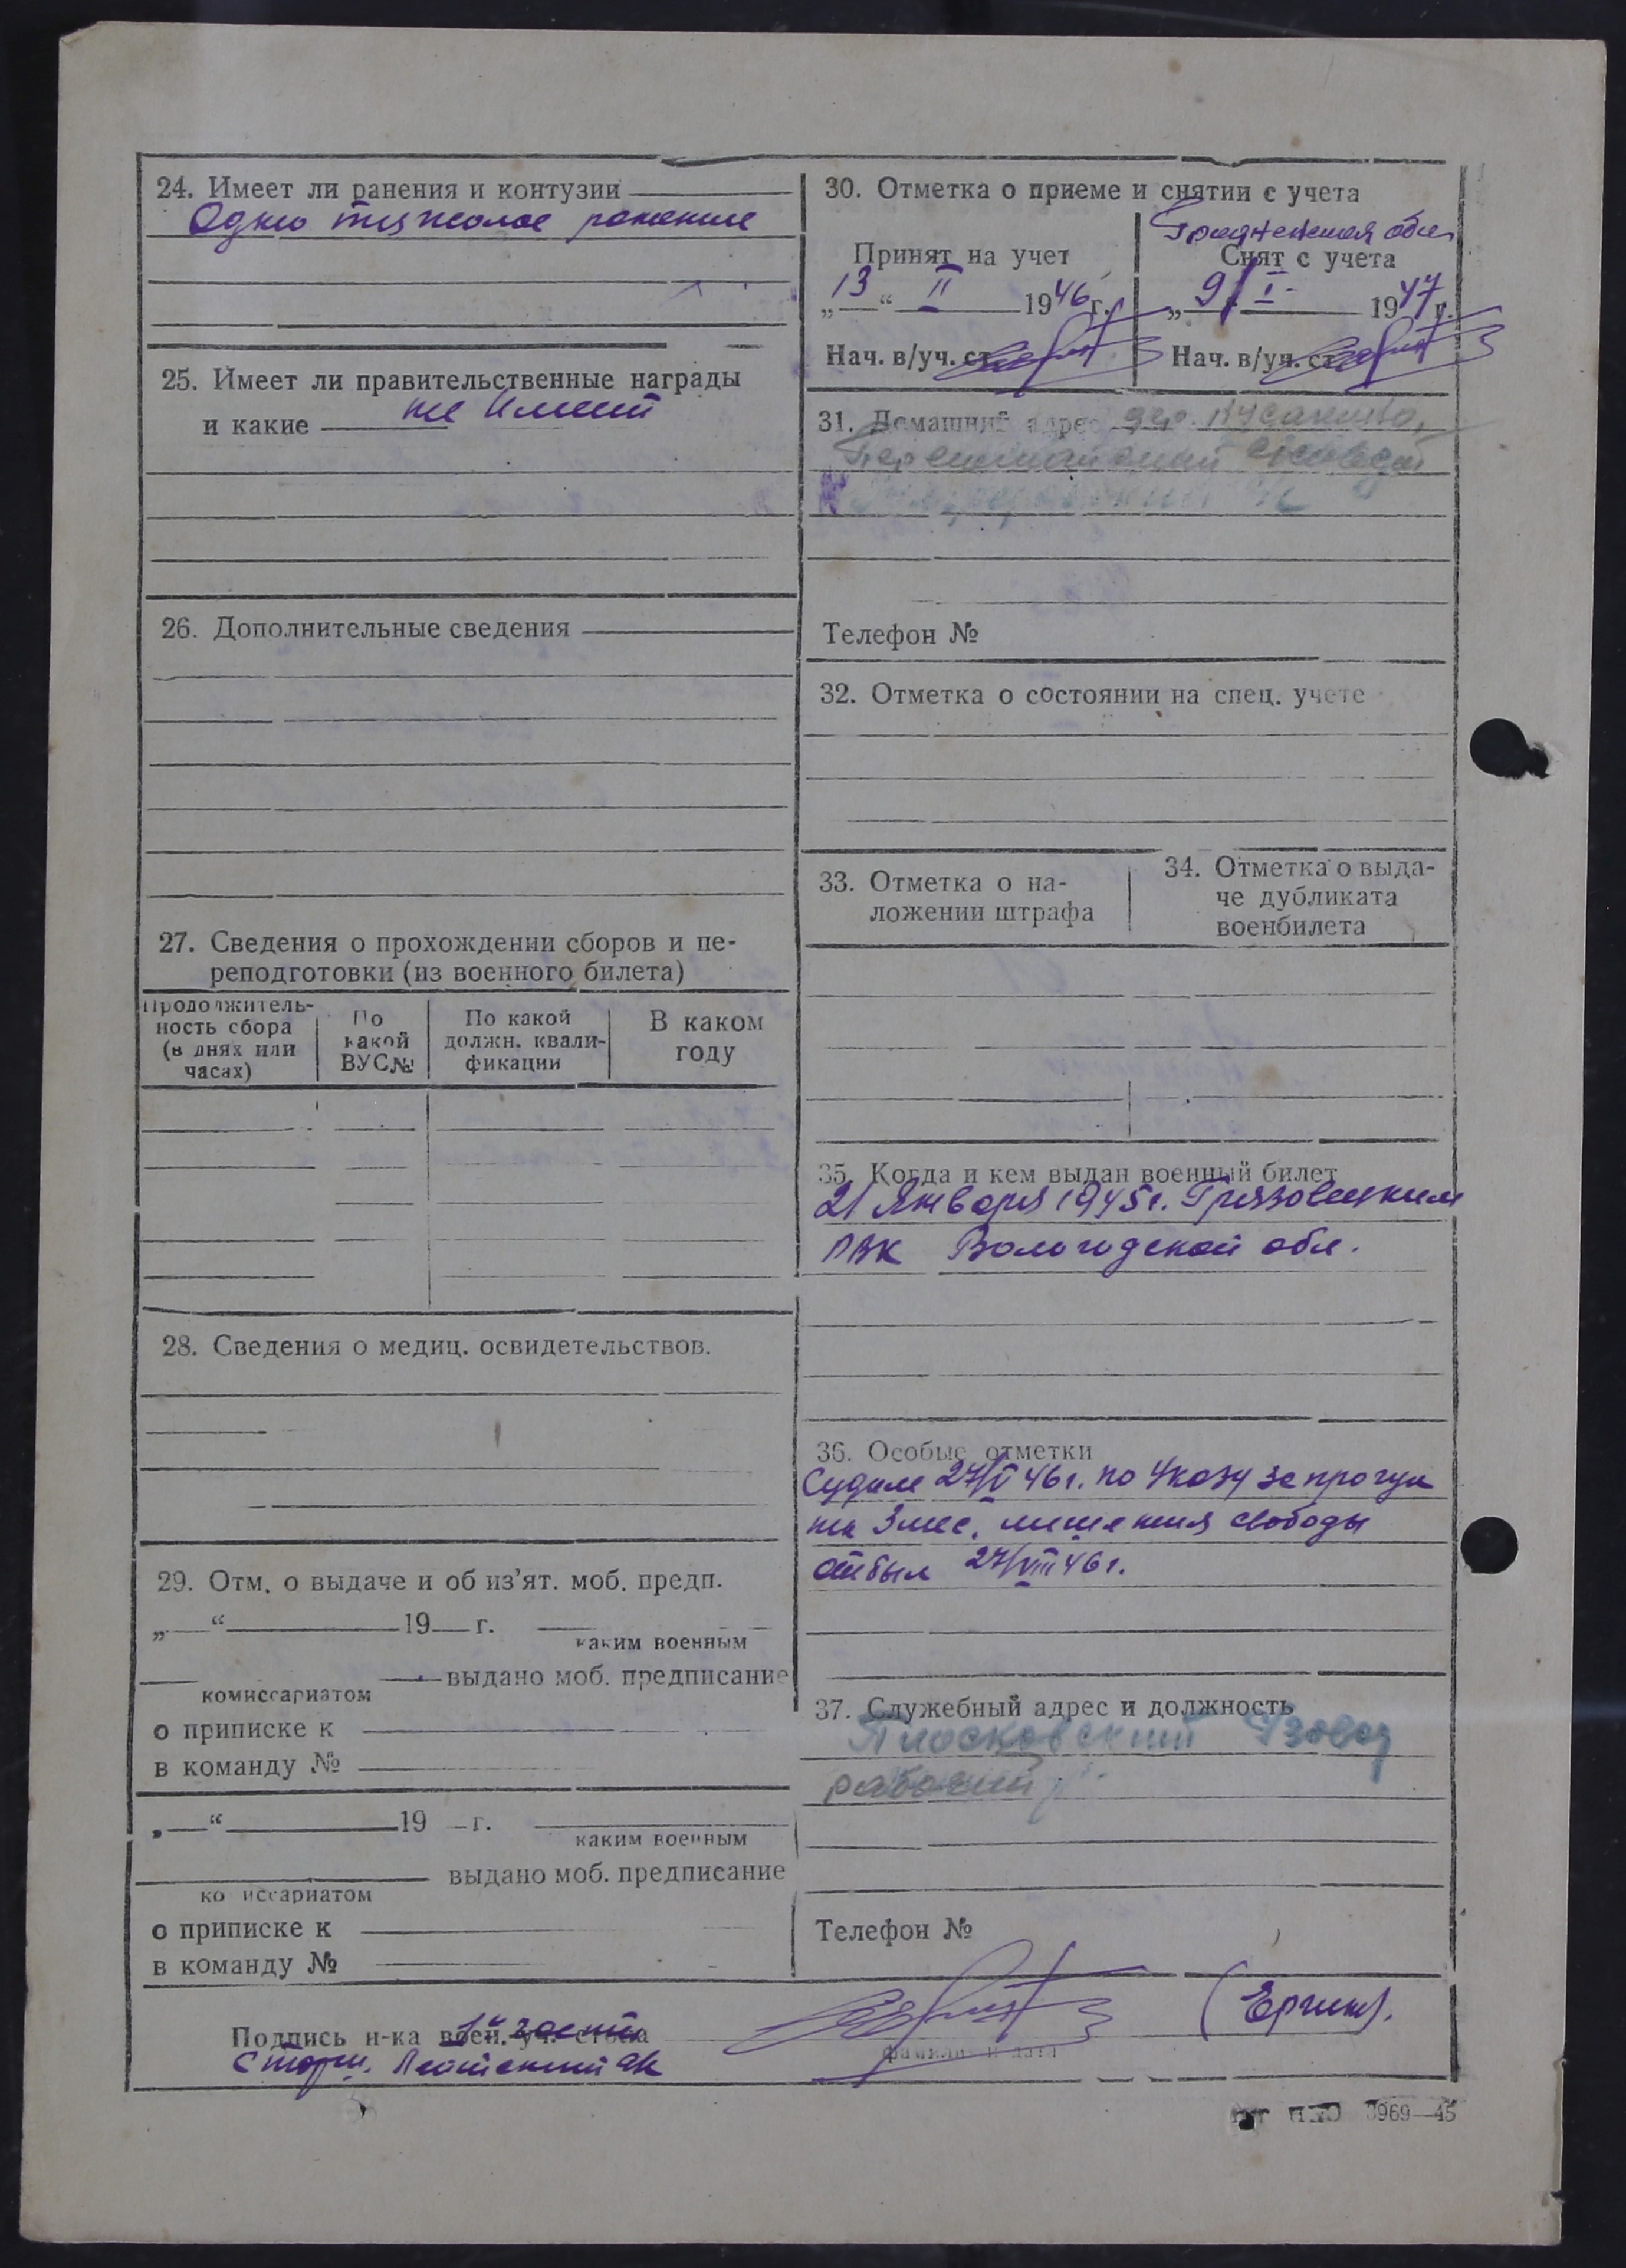 24. Имеет ли ранения и контузии
Одно тяжолое ранение
25. Имеет ли правительственные награды
и какие не имеит
26. Дополнительные сведения
27. Сведения о прохождении сборов и пе-
реподготовки (из военного билета)
Продолжитель-
ность сбора
(в днях или
часах)
По
какой
ВУС№
По какой
должн. квали-
фикации
В каком
году
28. Сведения о медиц. освидетельствов.
29. Отм. о выдаче и об из'ят. моб. предп.
„ “ 19 г.
каким военным
выдано моб. предписание
комиссариатом
о приписке к
в команду №
„ “ 19 г.
каким военным
выдано моб. предписание
комиссариатом
о приписке к
в команду №
30. Отметка о приеме и снятии с учета
Принят на учет
„13“ II 1946 г.
Нач. в/уч. ст.
обл
Снят с учета
„9/ I 1947 г.
Нач. в/уч. ст.
31. Домашний адрес дер.
Телефон №
32. Отметка о состоянии на спец. учете
33. Отметка о на-
ложении штрафа
34. Отметка о выда-
че дубликата
военбилета
35. Когда и кем выдан военный билет
21 Января 1945 г. Грязовецким
РВК Вологодской обл.
36. Особые отметки
Судим 27/V 46 г. по Указу за прогул
на 3 мес. лишения свободы
отбыл 27/VIII 46 г.
37. Служебный адрес и должность
Плосковский
рабочий
Телефон №
Подпись н-ка воен. уч. стола 1й части
Старш. Лейтенант ак
фамилия и дата
(Ергин).
3969—45